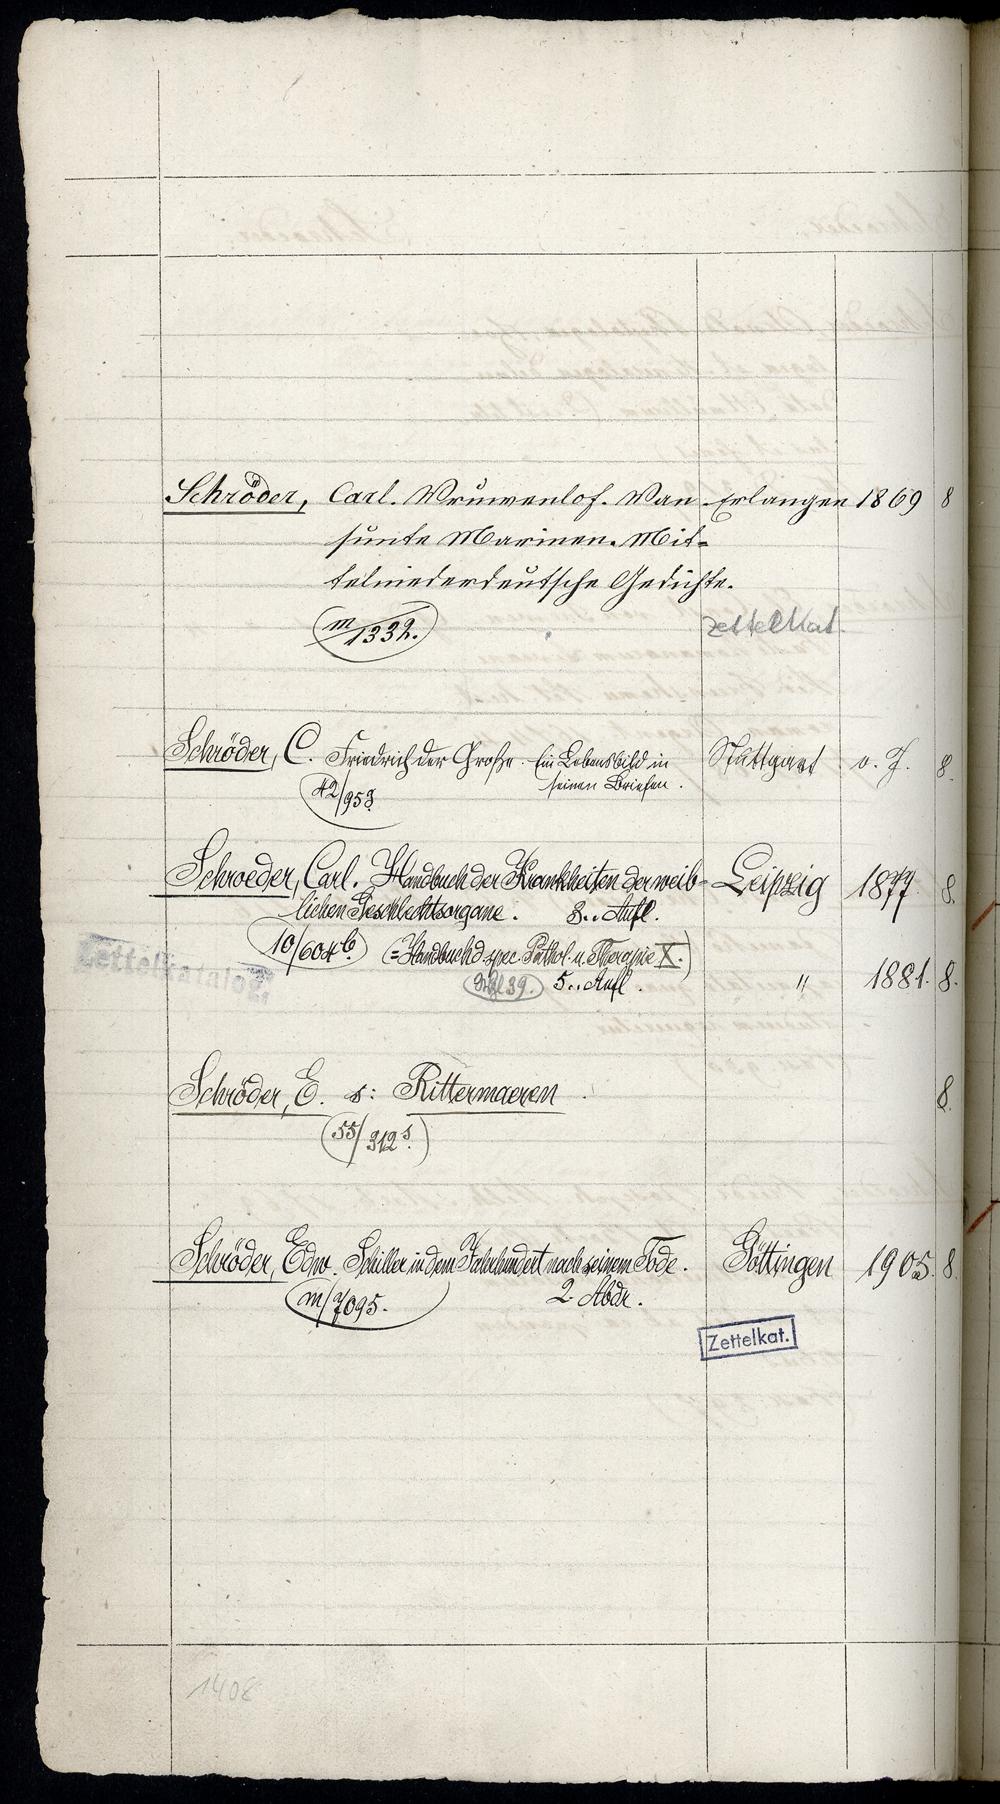 Schröder, Carl. Vruwenlof. Van Erlangen 1869 8
sunte Marinen. Mit-
telniederdeutsche Gedichte.
m/1332. Zettelkat.
Schröder, C. Friedrich der Große. Ein Lebensbild in Stuttgart o. J. 8.
seinen Briefen.
42/953
Schroeder, Carl. Handbuch der Krankheiten der weib- Leipzig 1877 8.
lichen Geschlechtsorgane. 3. Aufl.
10/604b. (= Handbuch d. spec. Pathol. u. Therapie X.)
Zettelkatalog.
5. Aufl. " 1881. 8.
Schröder, E. s: Rittermaeren 8.
55/312s.
Schröder, Edw. Schiller in dem Jahrhundert nach seinem Tode. Göttingen 1905. 8.
m/7095. 2. Abdr.
Zettelkat.
1408